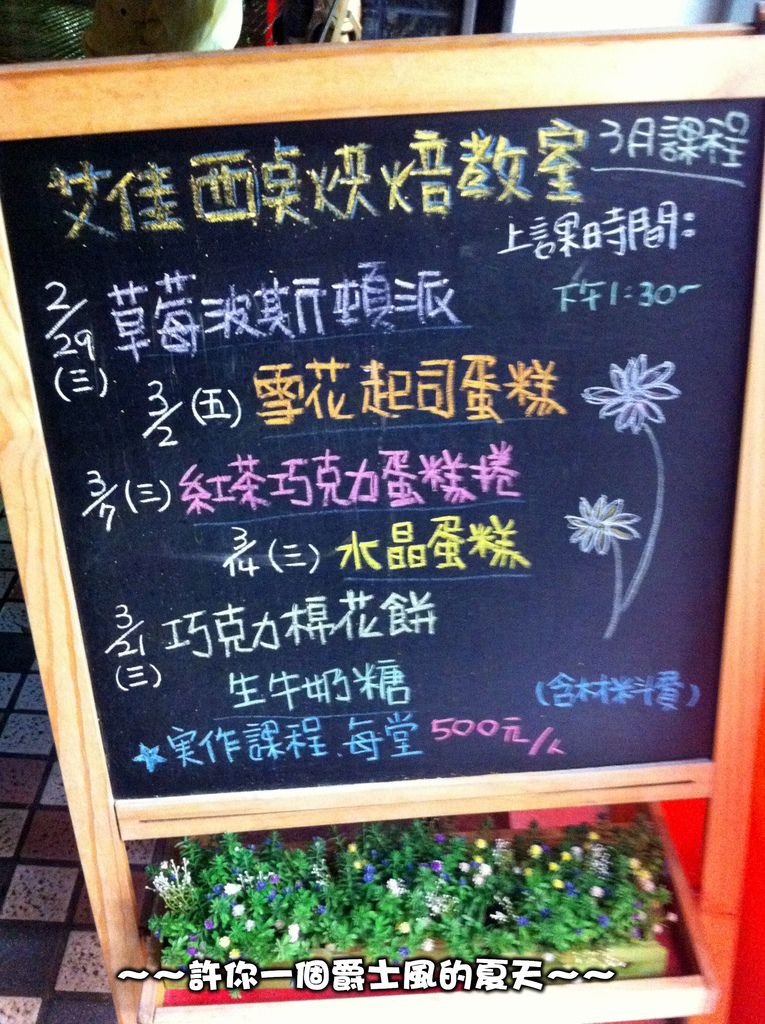 艾佳西點烘焙教室 3月課程
上課時間:
下午1:30~
2/29(三) 草莓波斯頓派
3/2(五) 雪花起司蛋糕
3/7(三) 紅茶巧克力蛋糕捲
3/14(三) 水晶蛋糕
3/21(三) 巧克力棉花餅
生牛奶糖 (含材料費)
★實作課程、每堂500元/人
～～許你一個爵士風的夏天～～